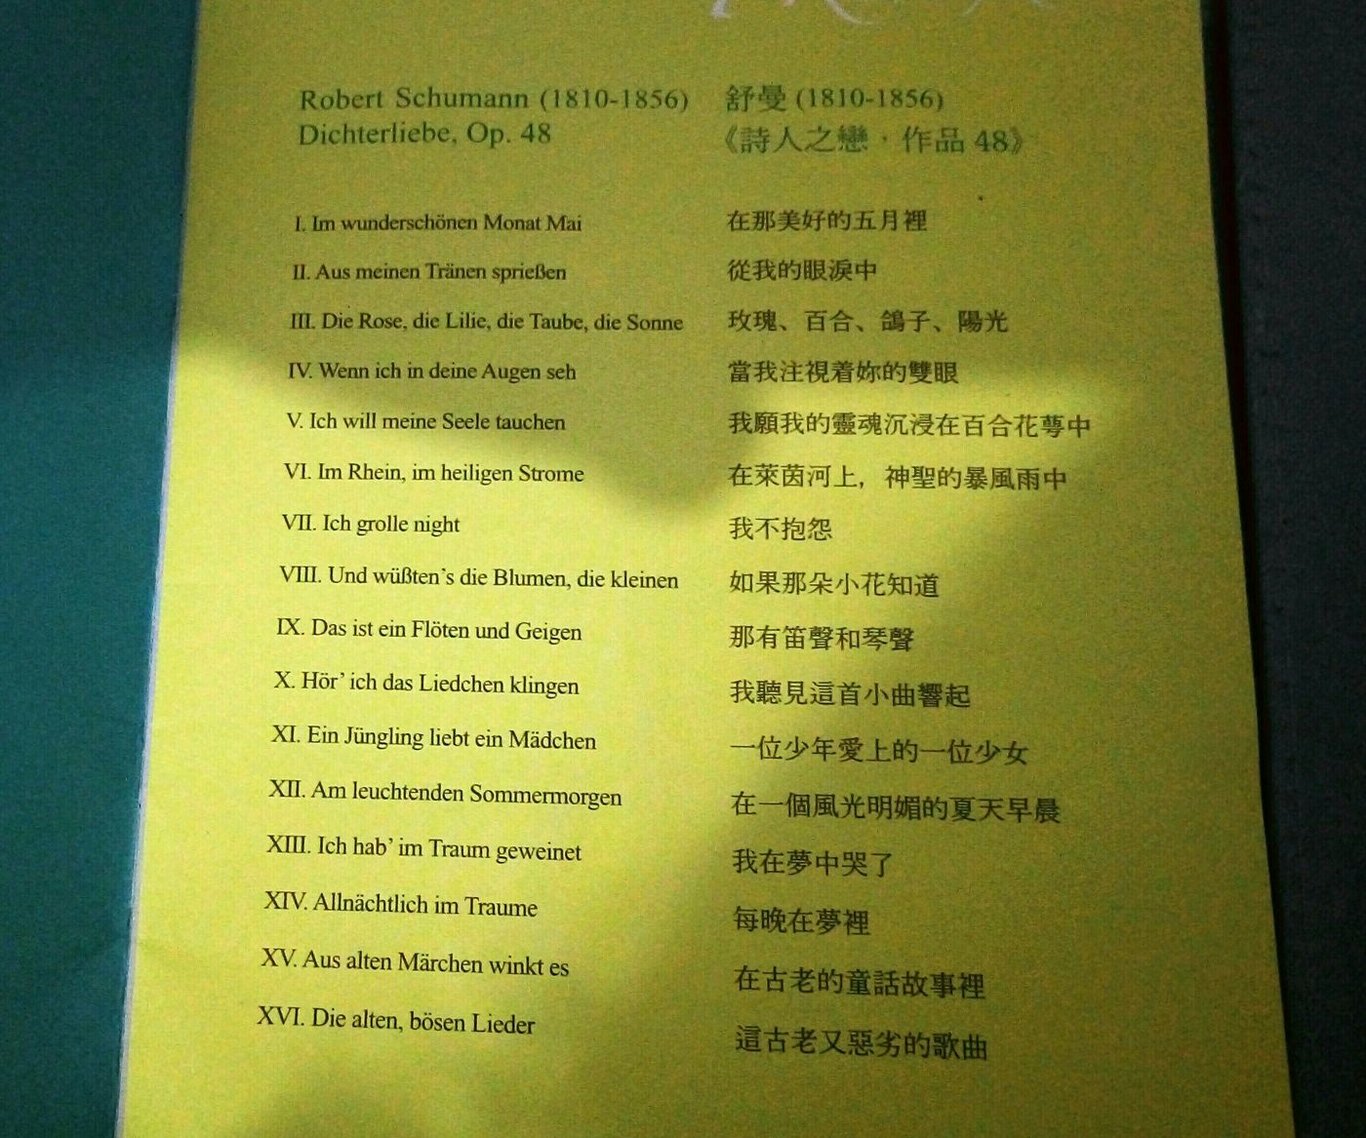 Robert Schumann (1810-1856)
Dichterliebe, Op. 48
舒曼 (1810-1856)
《詩人之戀·作品 48》
I. Im wunderschönen Monat Mai 在那美好的五月裡
II. Aus meinen Tränen sprießen 從我的眼淚中
III. Die Rose, die Lilie, die Taube, die Sonne 玫瑰、百合、鴿子、陽光
IV. Wenn ich in deine Augen seh 當我注視着妳的雙眼
V. Ich will meine Seele tauchen 我願我的靈魂沉浸在百合花萼中
VI. Im Rhein, im heiligen Strome 在萊茵河上，神聖的暴風雨中
VII. Ich grolle night 我不抱怨
VIII. Und wüßten`s die Blumen, die kleinen 如果那朵小花知道
IX. Das ist ein Flöten und Geigen 那有笛聲和琴聲
X. Hör’ ich das Liedchen klingen 我聽見這首小曲響起
XI. Ein Jüngling liebt ein Mädchen 一位少年愛上的一位少女
XII. Am leuchtenden Sommermorgen 在一個風光明媚的夏天早晨
XIII. Ich hab’ im Traum geweinet 我在夢中哭了
XIV. Allnächtlich im Traume 每晚在夢裡
XV. Aus alten Märchen winkt es 在古老的童話故事裡
XVI. Die alten, bösen Lieder 這古老又惡劣的歌曲